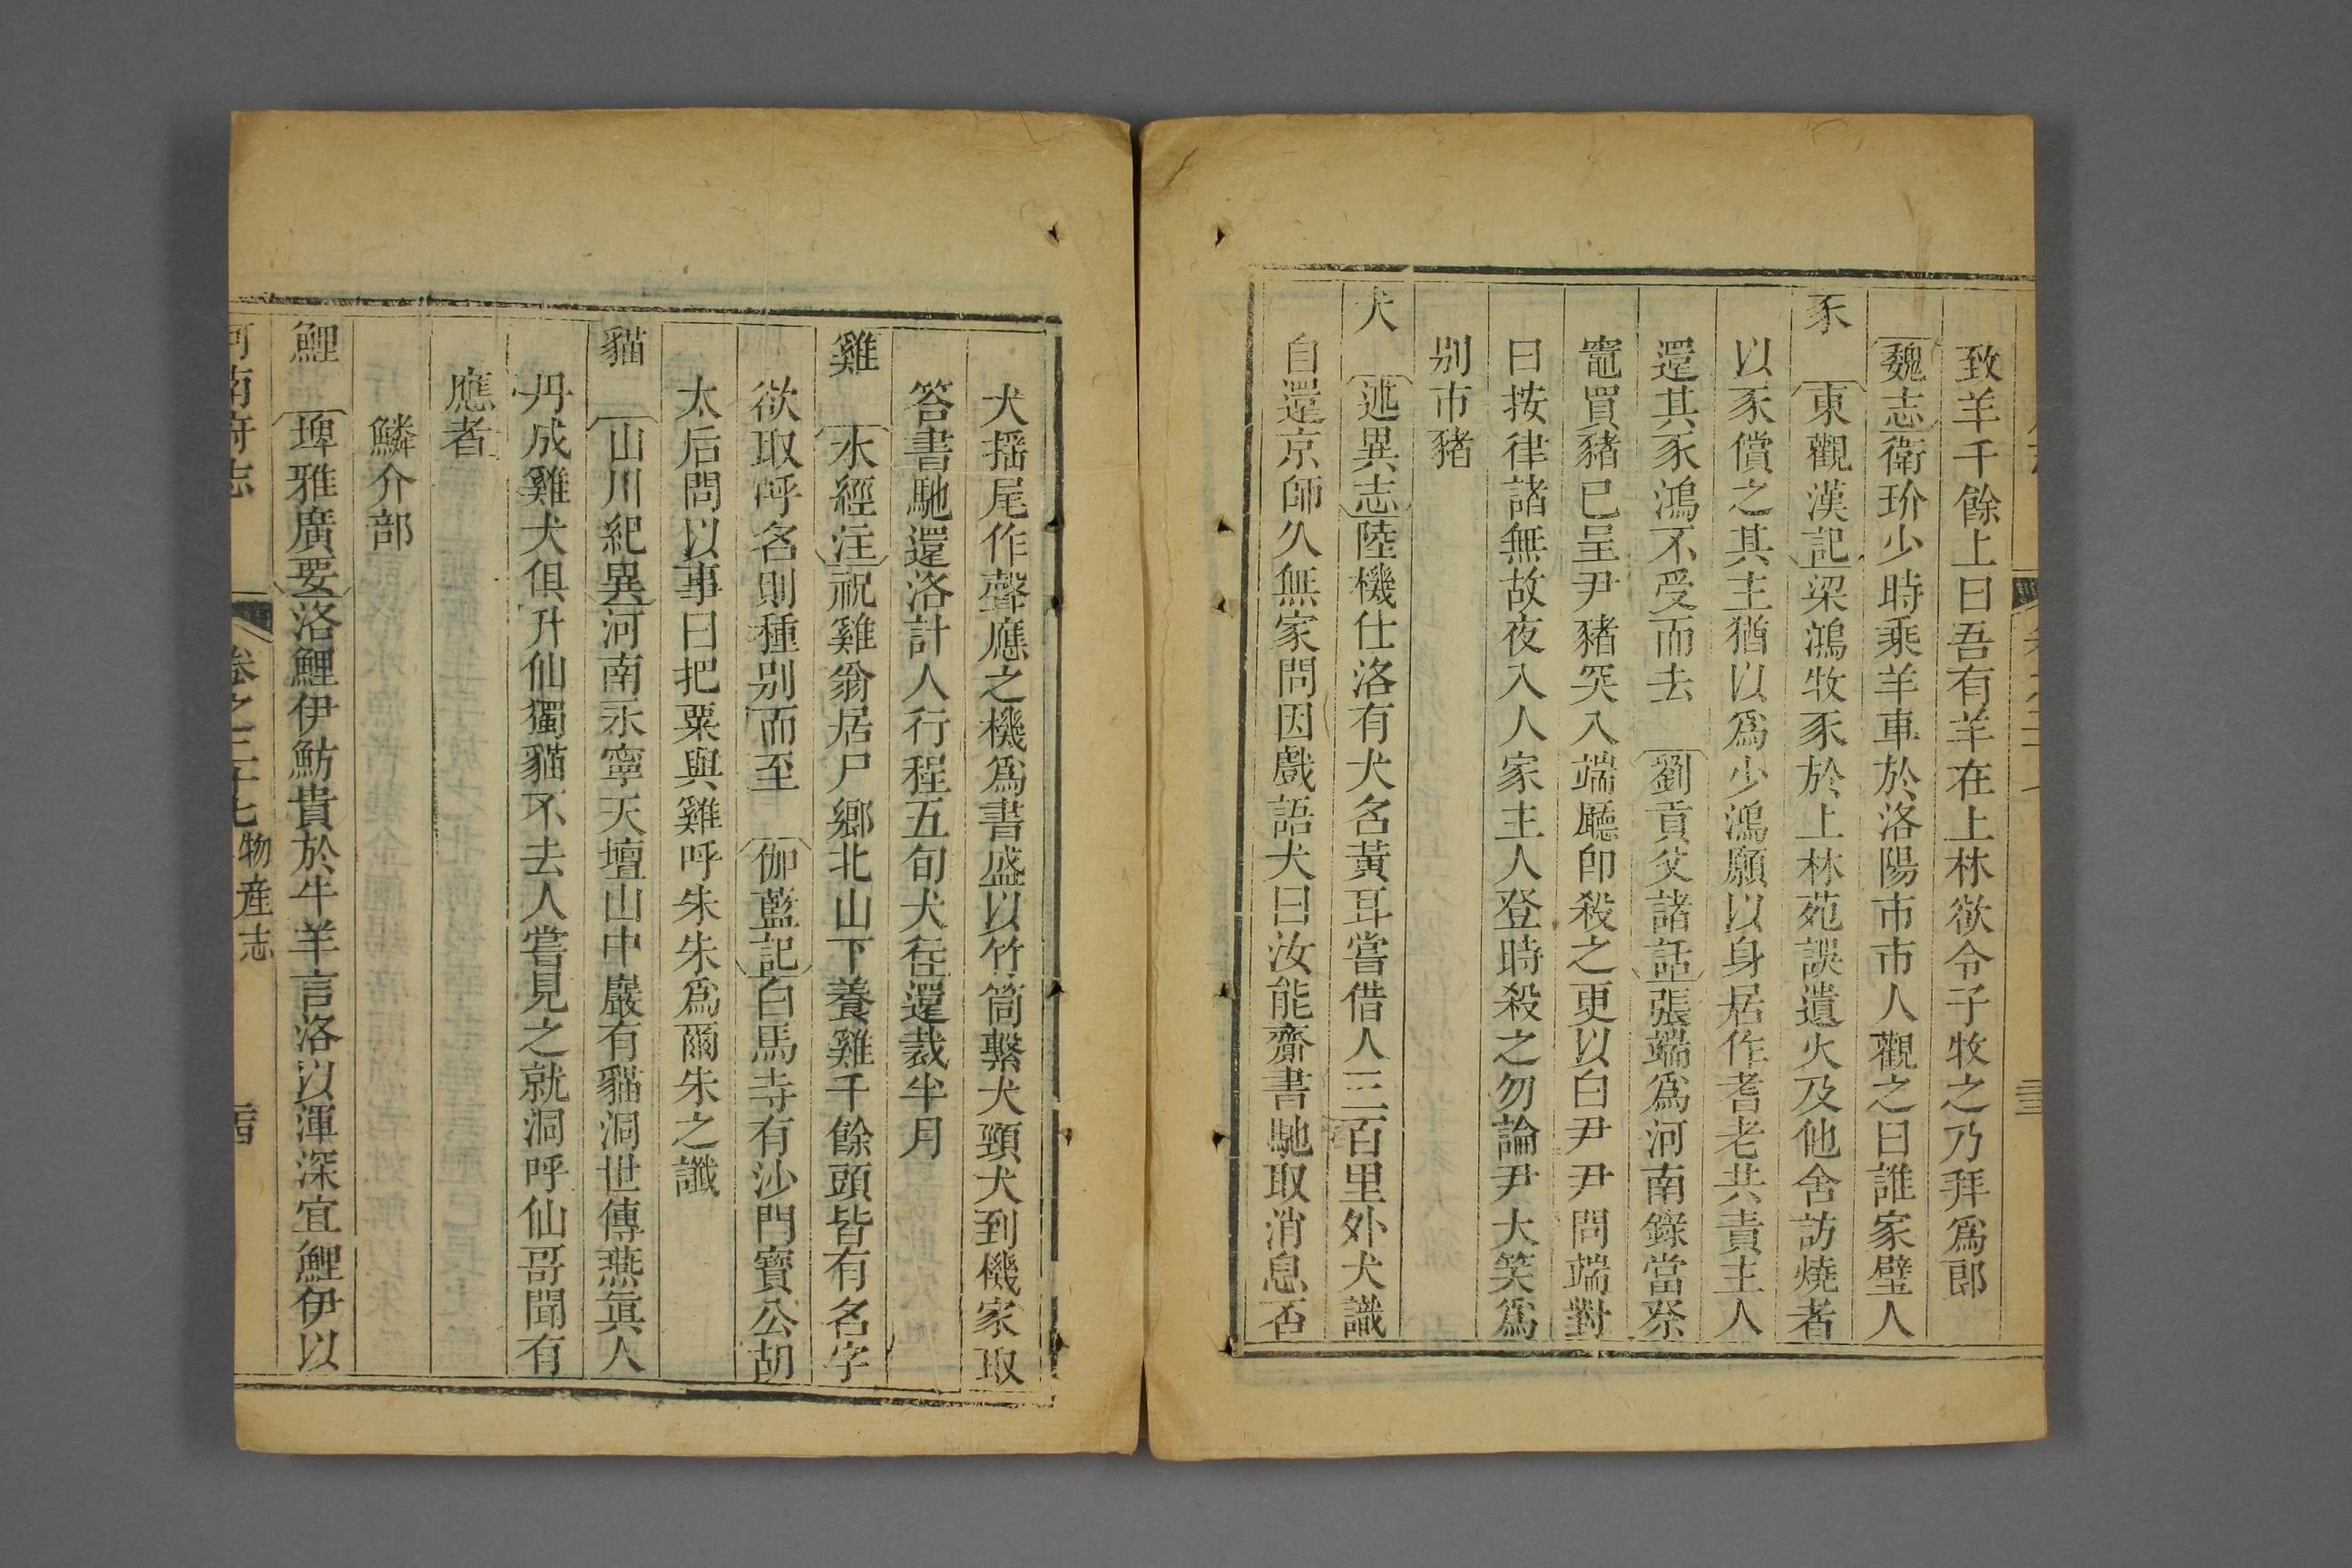 致羊千餘上曰吾有羊在上林欲令子牧之乃拜爲郎
魏志衛玠少時乘羊車於洛陽市市人觀之曰誰家璧人
豕　東觀漢記梁鴻牧豕於上林苑誤遺火及他舍訪燒者
以豕償之其主猶以爲少鴻願以身居作耆老共責主人
還其豕鴻不受而去　劉貢父諸話張端爲河南錄當祭
竈買豬已呈尹豬突入端廳卽殺之更以白尹尹問端對
曰按律諸無故夜入人家主人登時殺之勿論尹大笑爲
别市豬
犬　述異志陸機仕洛有犬名黃耳嘗借人三百里外犬識
自還京師久無家問因戲語犬曰汝能齎書馳取消息否
犬搖尾作聲應之機爲書盛以竹筒繫犬頸犬到機家取
答書馳還洛計人行程五旬犬往還裁半月
雞　水經注祝雞翁居尸鄉北山下養雞千餘頭皆有名字
欲取呼名則種别而至　伽藍記白馬寺有沙門寶公胡
太后問以事曰把粟與雞呼朱朱爲爾朱之讖
貓　山川紀異河南永寧天壇山中巖有貓洞世傳燕眞人
丹成雞犬俱升仙獨貓不去人嘗見之就洞呼仙哥聞有
應者
鱗介部
鯉　埤雅廣要洛鯉伊魴貴於牛羊言洛以渾深宜鯉伊以
河南府志　卷之二十七物產志　二十四